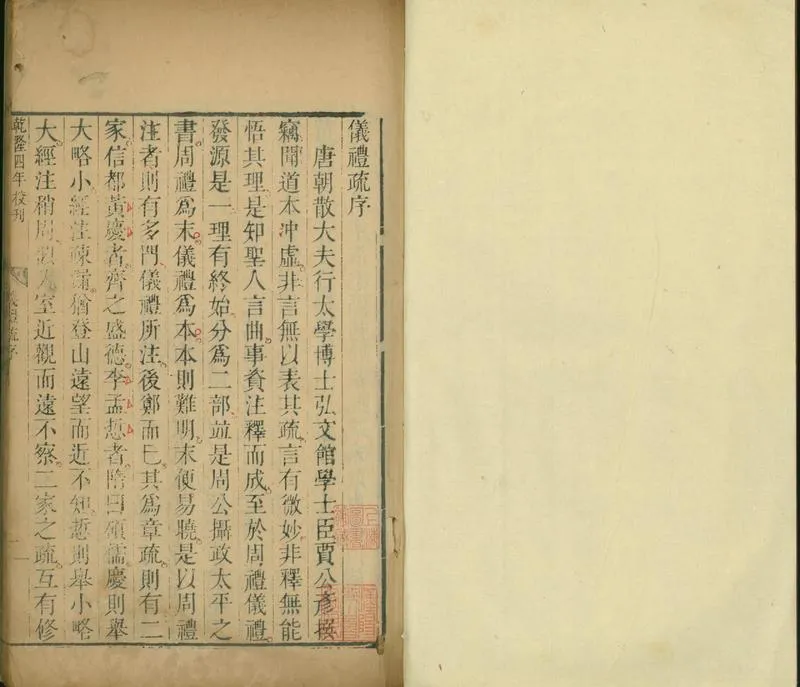 儀禮疏序
唐朝散大夫行太學博士弘文館學士臣賈公彥撰
竊聞道本冲虛非言無以表其疏言有微妙非釋無能
悟其理是知聖人言曲事資注釋而成至於周禮儀禮
發源是一理有終始分爲二部並是周公攝政太平之
書周禮爲末儀禮爲本本則難明末便易曉是以周禮
注者則有多門儀禮所注後鄭而已其爲章疏則有二
家信都黃慶者齊之盛德李孟悊者隋曰碩儒慶則舉
大略小經注疎漏猶登山遠望而近不知悊則舉小略
大經注稍周似入室近觀而遠不察二家之疏互有修
乾隆四年校刊
儀禮疏序
一